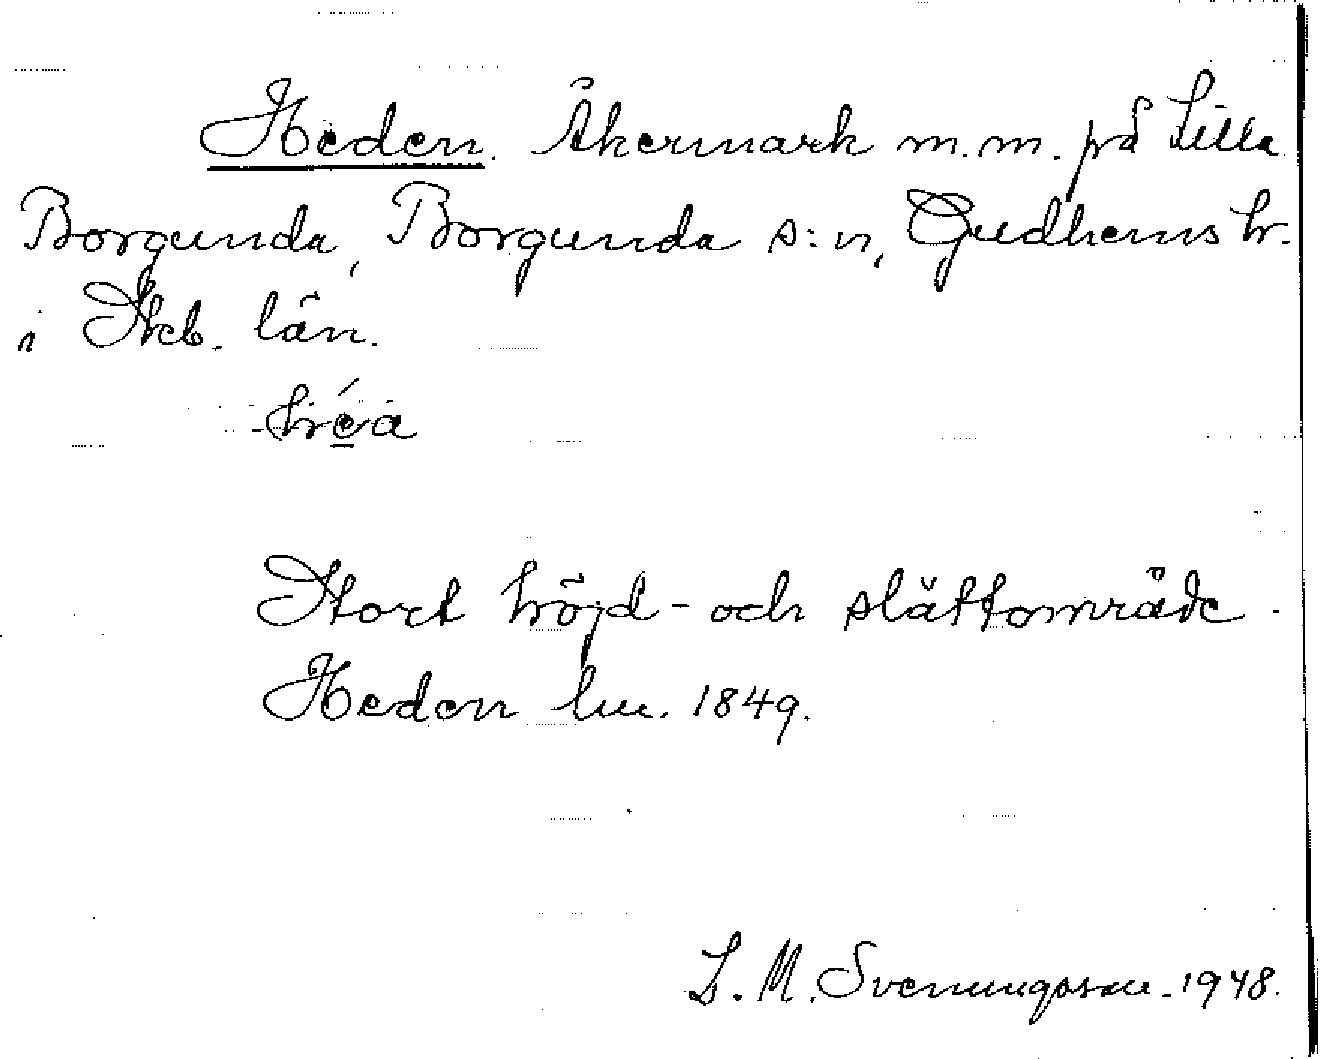 Heden. Åkermark m.m. på Lilla
Borgunda, Borgunda s:n, Gudhems hr.
i Skb. län.
hréa
Stort höjd- och slättområde.
Heden lm. 1849.
L. M. Svenungsson. 1948.